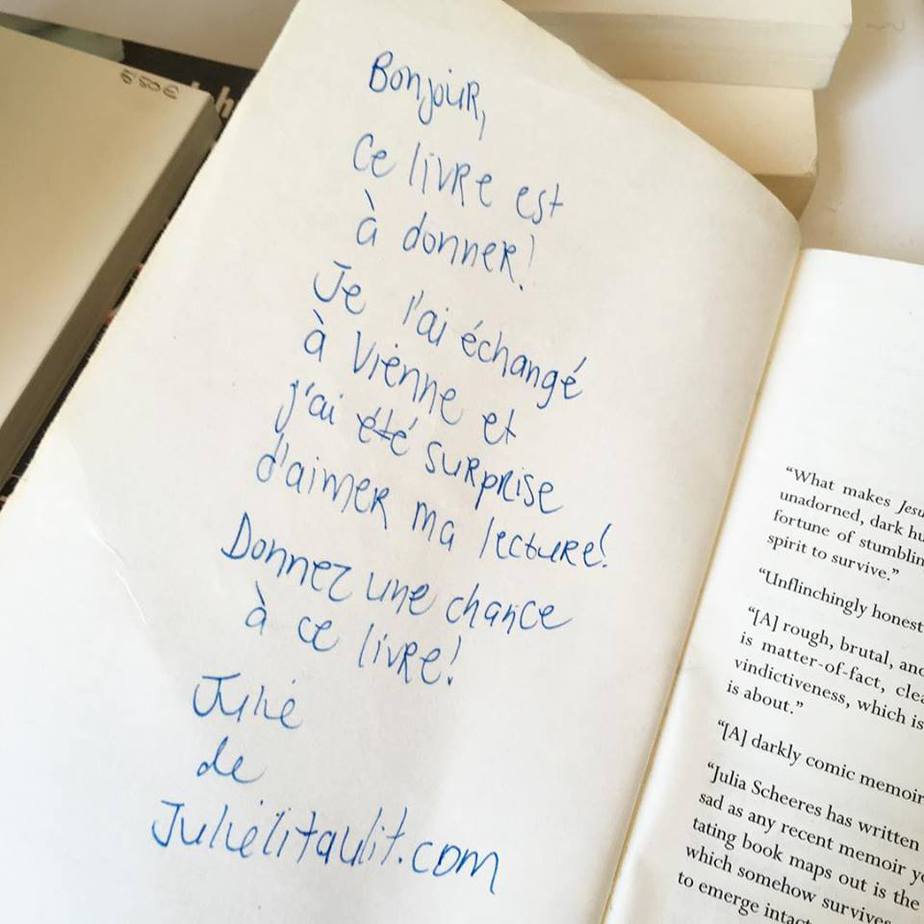 Bonjour,
Ce livre est
à donner!
Je l'ai échangé
à Vienne et
j'ai été surprise
d'aimer ma lecture!
Donnez une chance
à ce livre!
Julie
de
Julielitaulit.com
"What makes Jesu
unadorned, dark hu
fortune of stumblin
spirit to survive."
"Unflinchingly honest
"[A] rough, brutal, and
is matter-of-fact, clea
vindictiveness, which is
is about."
"[A] darkly comic memoir
"Julia Scheeres has written
sad as any recent memoir yo
tating book maps out is the
which somehow survives
to emerge intact